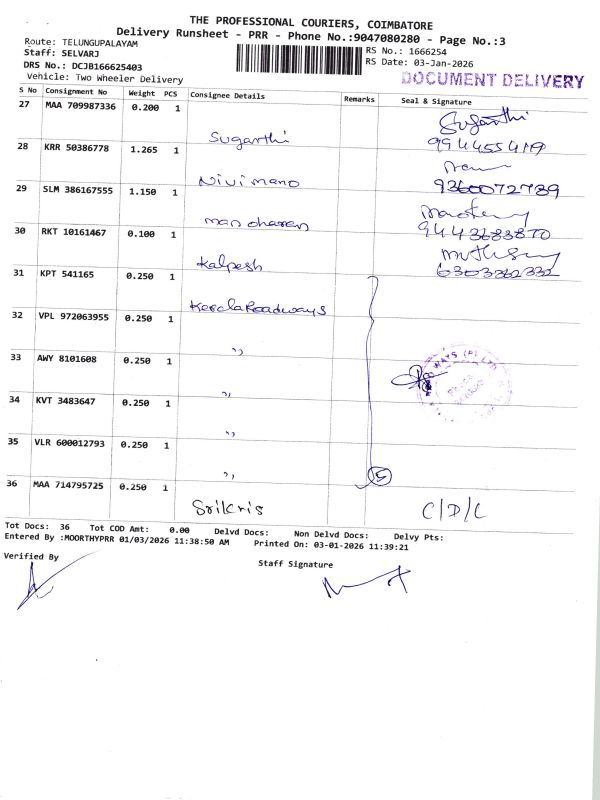 THE PROFESSIONAL COURIERS, COIMBATORE
Delivery Runsheet - PRR - Phone No.:9047080280 - Page No.:3
Route: TELUNGUPALAYAM
Staff: SELVARJ
DRS No.: DCJB166625403
Vehicle: Two Wheeler Delivery
RS No.: 1666254
RS Date: 03-Jan-2026
DOCUMENT DELIVERY
S No Consignment No Weight PCS Consignee Details Remarks Seal & Signature
27 MAA 709987336 0.200 1
Suganthi Suganthi
9944554119
28 KRR 50386778 1.265 1
Nivimano 9360072789
29 SLM 386167555 1.150 1
manoharan 9443683870
30 RKT 10161467 0.100 1
Kalpesh 6303362332
31 KPT 541165 0.250 1
Kerala Roadways
32 VPL 972063955 0.250 1
"
33 AWY 8101608 0.250 1
"
34 KVT 3483647 0.250 1
"
35 VLR 600012793 0.250 1
" 5
WAYS (P) LTD
36 MAA 714795725 0.250 1
Srikris C/D/L
Tot Docs: 36 Tot COD Amt: 0.00 Delvd Docs: Non Delvd Docs: Delvy Pts:
Entered By :MOORTHYPRR 01/03/2026 11:38:50 AM Printed On: 03-01-2026 11:39:21
Verified By
Staff Signature